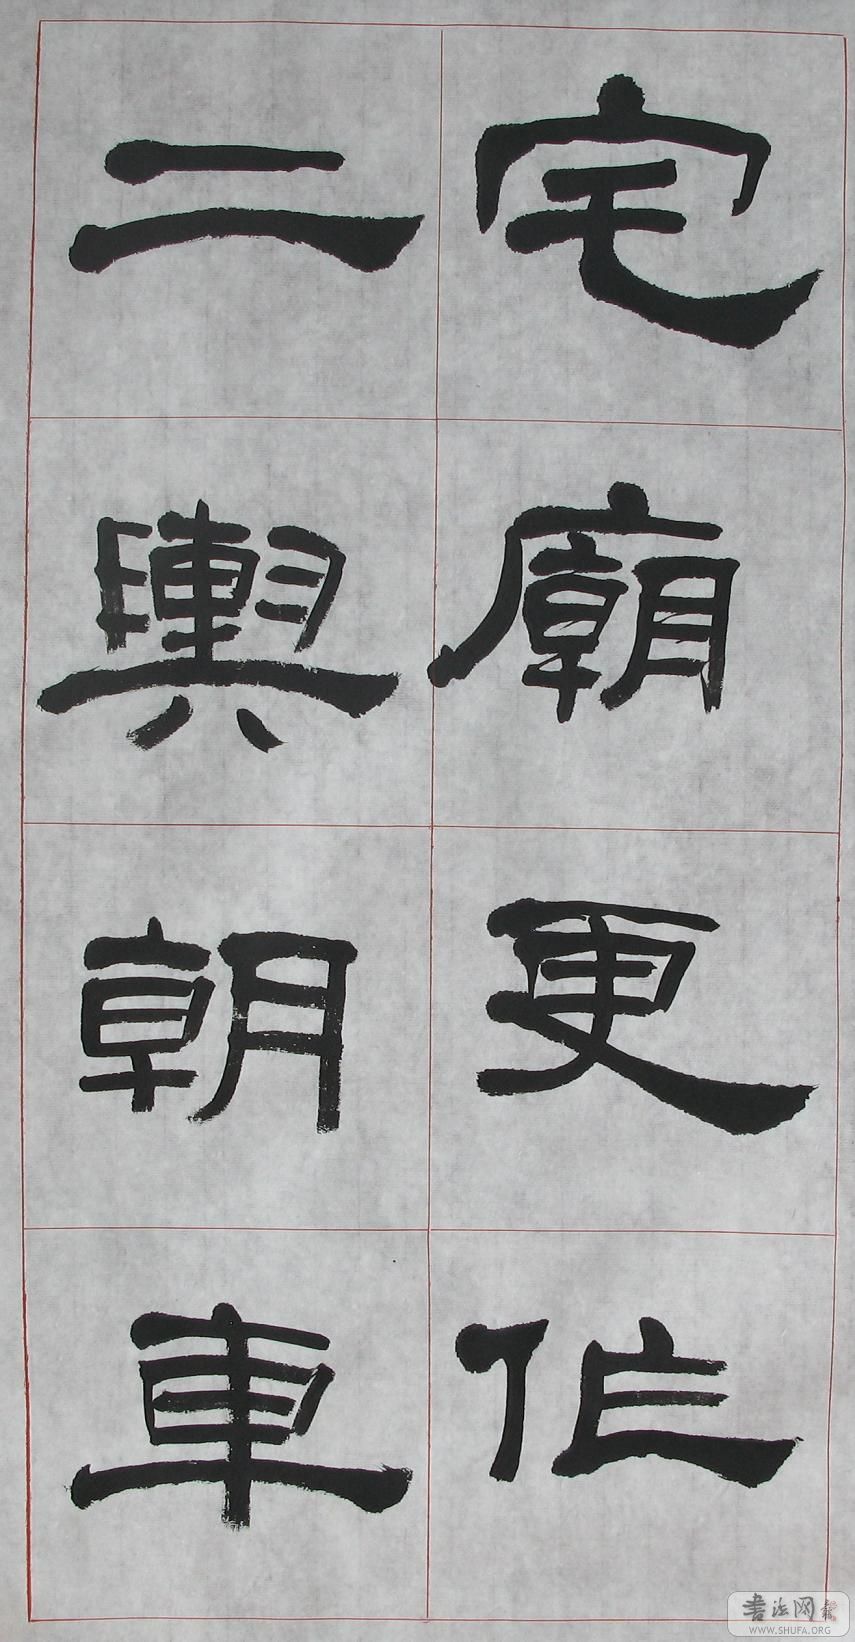 宅廟更作
二輿朝車
書法网
WWW.SHUFA.ORG